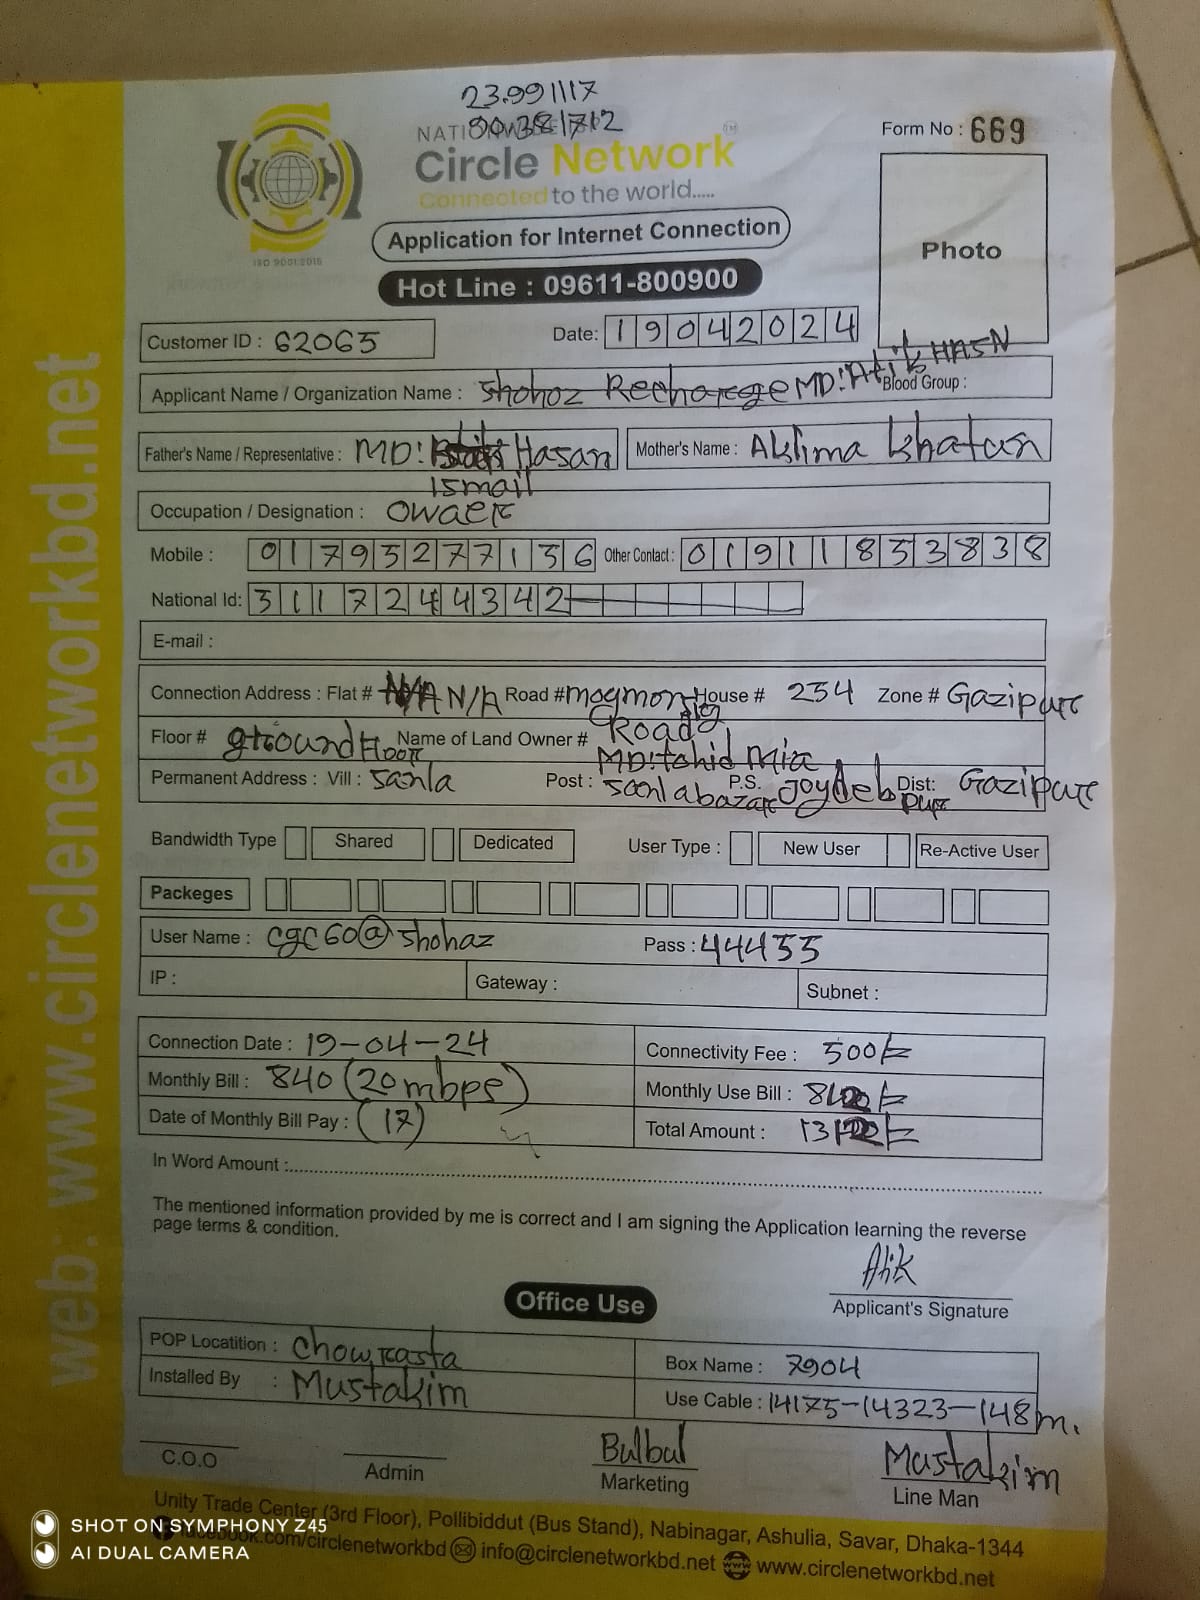 23.991117
90.381712
Form No : 669
Circle Network
Connected to the world.....
ISO 9001:2015
Photo
Application for Internet Connection
Hot Line : 09611-800900
Customer ID : 62065
Date: 19042024
Applicant Name / Organization Name : Shohoz Recharge MD: Atik HASN
Blood Group :
Father's Name / Representative : MD: Hasan
Ismail
Mother's Name : Aklima khatun
Occupation / Designation : Owaer
Mobile : 01795277156 Other Contact : 01911853838
National Id: 5117244342
E-mail :
Connection Address : Flat # N/A Road # House # 254 Zone # Gazipur
Road
Floor # ground Floor Name of Land Owner # MD: tohid Mia
Permanent Address : Vill : Sanla Post : P.S. Joydeb pur Dist: Gazipur
Bandwidth Type Shared Dedicated User Type : New User Re-Active User
Packeges
User Name : cgc60@shohaz Pass : 44455
IP : Gateway : Subnet :
Connection Date : 19-04-24 Connectivity Fee : 500/=
Monthly Bill : 840 (20mbps) Monthly Use Bill :
Date of Monthly Bill Pay : (17) Total Amount :
In Word Amount :
The mentioned information provided by me is correct and I am signing the Application learning the reverse
page terms & condition.
Atik
Applicant's Signature
Office Use
POP Locatition : Chowrasta Box Name : 7904
Installed By : Mustakim Use Cable : 14175-14323-148m.
C.O.O Admin Bulbul Marketing Mustakim Line Man
Unity Trade Center (3rd Floor), Pollibiddut (Bus Stand), Nabinagar, Ashulia, Savar, Dhaka-1344
facebook.com/circlenetworkbd info@circlenetworkbd.net www.circlenetworkbd.net
web: www.circlenetworkbd.net
SHOT ON SYMPHONY Z45
AI DUAL CAMERA